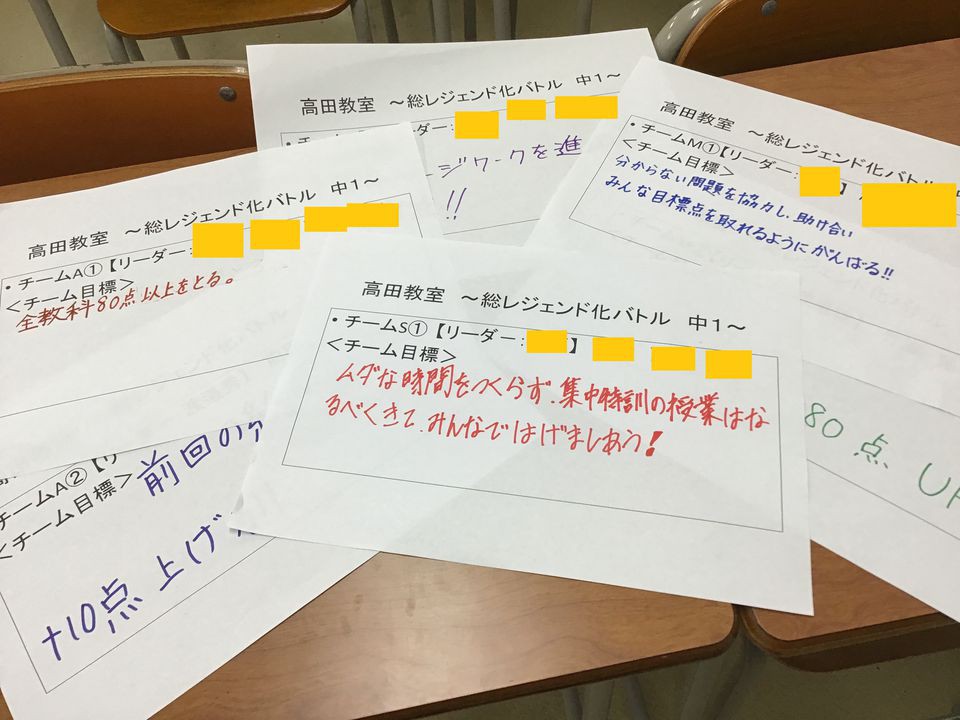 高田教室 ～総レジェンド化バトル 中1～
ジワークを進
!!
高田教室 ～総レジェンド化バトル 中
・チームM①【リーダー：
＜チーム目標＞
分からない問題を協力し、助け合い
みんな目標点を取れるようにがんばる!!
高田教室 ～総レジェンド化バトル 中1～
・チームA①【リーダー：
＜チーム目標＞
全教科80点以上をとる。
高田教室 ～総レジェンド化バトル 中1～
・チームS①【リーダー：】
＜チーム目標＞
ムダな時間をつくらず、集中特訓の授業はな
るべくきて、みんなではげましあう!
チームA②【リ
＜チーム目標＞
前回の
+10点 上げ
80点 UP